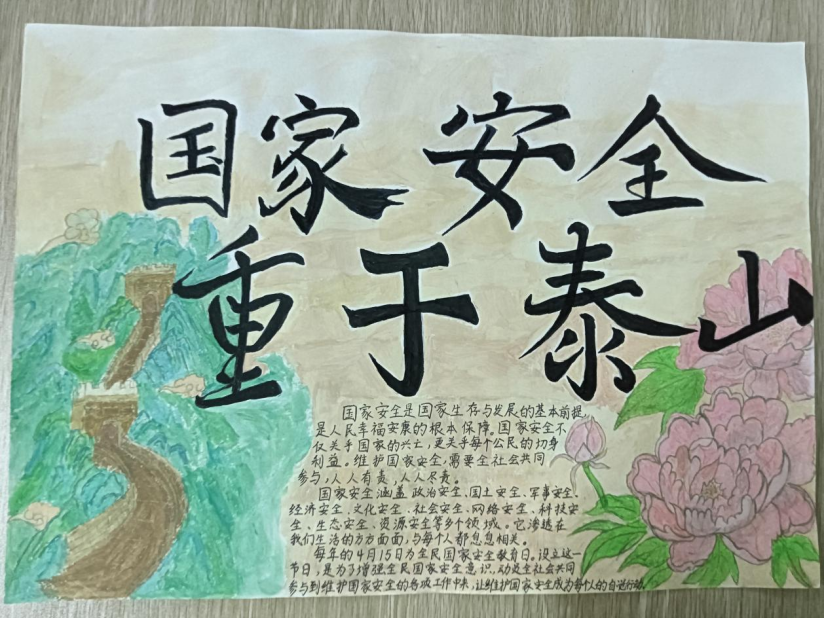 国家安全
重于泰山
国家安全是国家生存与发展的基本前提,
是人民幸福安康的根本保障。国家安全不
仅关乎国家的兴亡,更关乎每个公民的切身
利益。维护国家安全,需要全社会共同
参与,人人有责,人人尽责。
国家安全涵盖政治安全、国土安全、军事安全、
经济安全、文化安全、社会安全、网络安全、科技安
全、生态安全、资源安全等多个领域。它渗透在
我们生活的方方面面,与每个人都息息相关。
每年的4月15日为全民国家安全教育日。设立这一
节日,是为了增强全民国家安全意识,动员全社会共同
参与到维护国家安全的各项工作中来,让维护国家安全成为每个人的自觉行动。